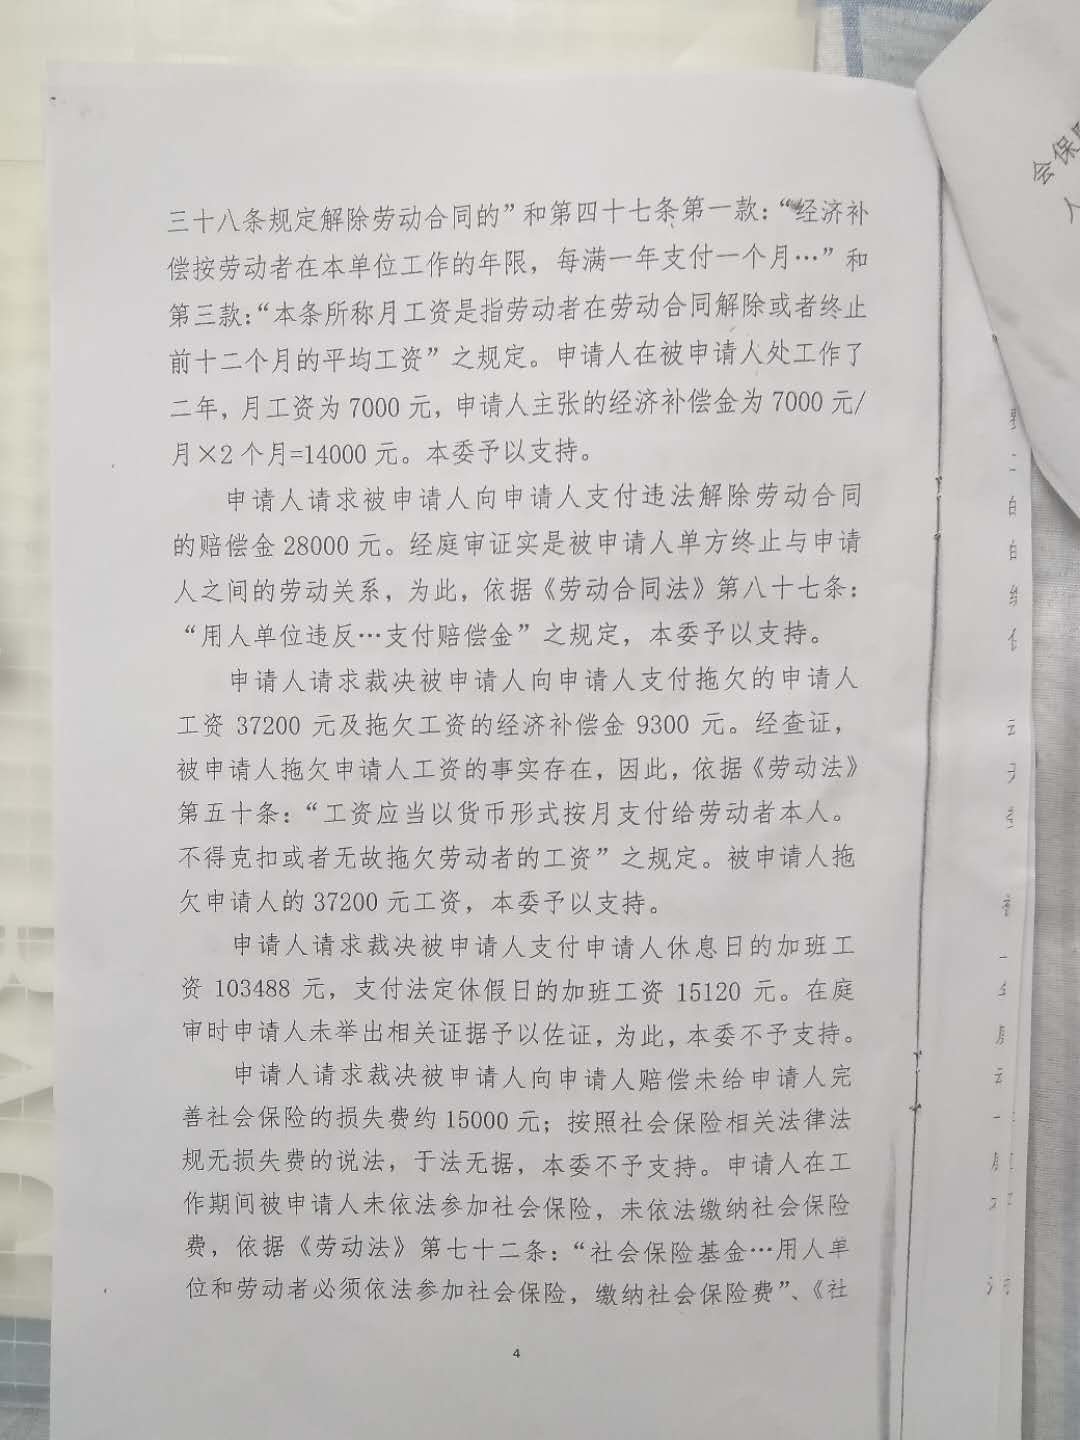 三十八条规定解除劳动合同的”和第四十七条第一款：“经济补
偿按劳动者在本单位工作的年限，每满一年支付一个月…”和
第三款：“本条所称月工资是指劳动者在劳动合同解除或者终止
前十二个月的平均工资”之规定。申请人在被申请人处工作了
二年，月工资为7000元，申请人主张的经济补偿金为7000元/
月×2个月=14000元。本委予以支持。
申请人请求被申请人向申请人支付违法解除劳动合同
的赔偿金28000元。经庭审证实是被申请人单方终止与申请
人之间的劳动关系，为此，依据《劳动合同法》第八十七条：
“用人单位违反…支付赔偿金”之规定，本委予以支持。
申请人请求裁决被申请人向申请人支付拖欠的申请人
工资37200元及拖欠工资的经济补偿金9300元。经查证，
被申请人拖欠申请人工资的事实存在，因此，依据《劳动法》
第五十条：“工资应当以货币形式按月支付给劳动者本人。
不得克扣或者无故拖欠劳动者的工资”之规定。被申请人拖
欠申请人的37200元工资，本委予以支持。
申请人请求裁决被申请人支付申请人休息日的加班工
资103488元，支付法定休假日的加班工资15120元。在庭
审时申请人未举出相关证据予以佐证，为此，本委不予支持。
申请人请求裁决被申请人向申请人赔偿未给申请人完
善社会保险的损失费约15000元；按照社会保险相关法律法
规无损失费的说法，于法无据，本委不予支持。申请人在工
作期间被申请人未依法参加社会保险，未依法缴纳社会保险
费，依据《劳动法》第七十二条：“社会保险基金…用人单
位和劳动者必须依法参加社会保险，缴纳社会保险费”、《社
4
会保
人